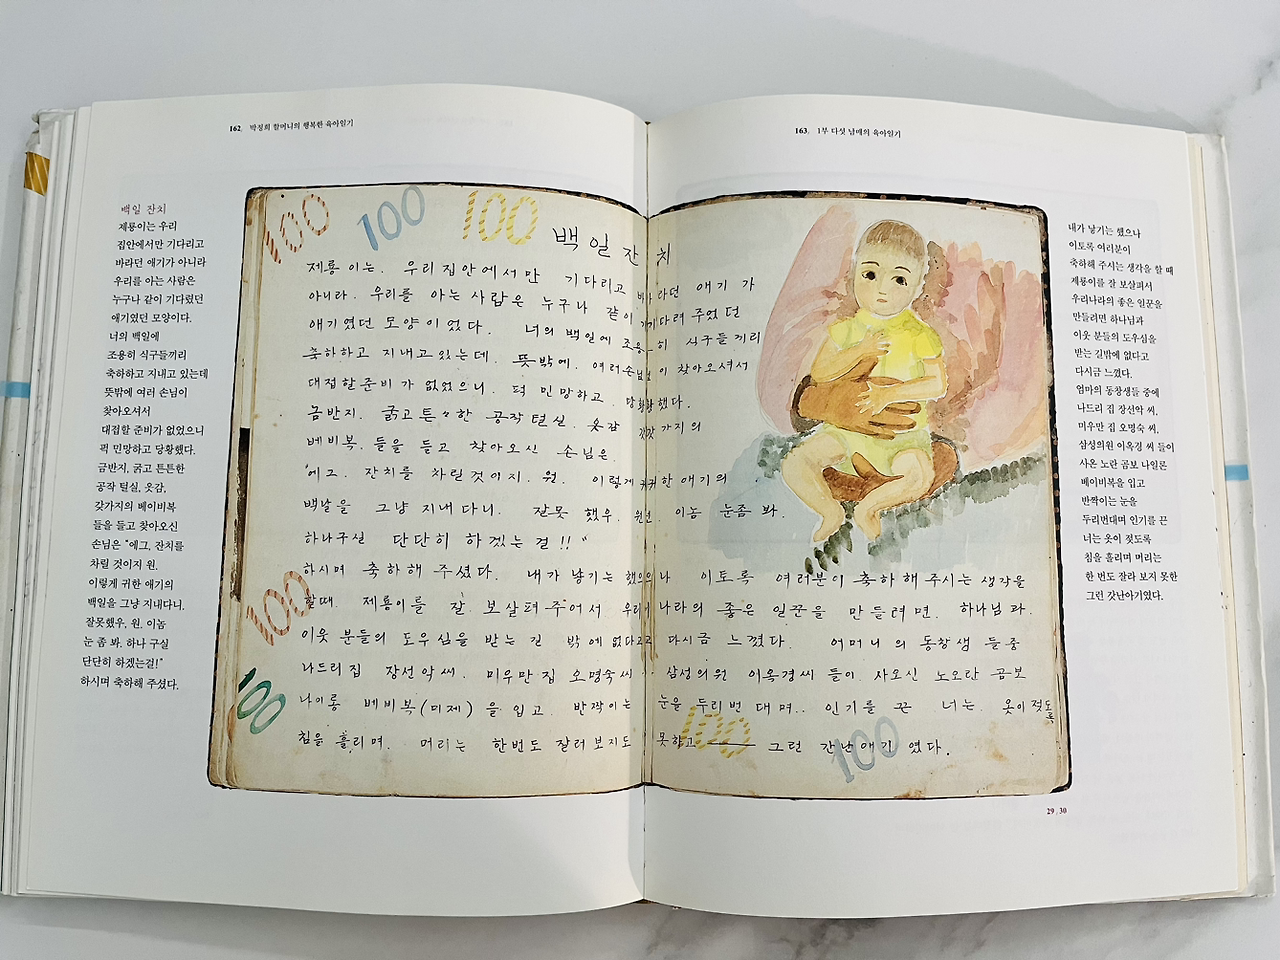 162, 박정희 할머니의 행복한 육아일기
백일 잔치
제룡이는 우리
집안에서만 기다리고
바라던 애기가 아니라
우리를 아는 사람은
누구나 같이 기다렸던
애기였던 모양이다.
너의 백일에
조용히 식구들끼리
축하하고 지내고 있는데
뜻밖에 여러 손님이
찾아오셔서
대접할 준비가 없었으니
퍽 민망하고 당황했다.
금반지, 굵고 튼튼한
공작 털실, 옷감,
갖가지의 베이비복
들을 들고 찾아오신
손님은 "에그, 잔치를
차릴 것이지 원.
이렇게 귀한 애기의
백일을 그냥 지내다니.
잘못했우, 원. 이놈
눈 좀 봐. 하나 구실
단단히 하겠는걸!"
하시며 축하해 주셨다.
100 100 100
백일잔치
제룡이는. 우리집안에서만 기다리고 바라던 애기가
아니라. 우리를 아는사람은 누구나 같이 기다려주었던
애기였던 모양이었다. 너의 백일에 조용히 식구들끼리
축하하고 지내고있는데. 뜻밖에. 여러손님이 찾아오셔서
대접할준비가 없었으니. 퍽 민망하고. 당황했다.
금반지. 굵고튼〃한 공작털실. 옷감 갖가지의
베비복. 들을들고 찾아오신 손님은.
"에그. 잔치를 차릴것이지. 원. 이렇게 귀한애기의
백날을 그냥 지내다니. 잘못했우. 원. 이놈 눈좀봐.
하나구실 단단히 하겠는걸!!"
하시며 축하해 주셨다. 내가 낳기는 했으나 이토록 여러분이 축하해주시는생각을
할때. 제룡이를 잘 보살펴주어서 우리나라의 좋은 일꾼을 만들려면. 하나님과.
이웃분들의 도우심을 받는길 밖에없다고 다시금 느꼈다. 어머니의동창생들중
나드리집 장선악씨. 미우만집 오명숙씨 삼성의원 이옥경씨들이. 사오신 노오란 곰보
나이롱 베비복(미제)을 입고. 반짝이는 눈을 두리번대며.. 인기를끈 너는. 옷이젖도록
침을 흘리며. 머리는 한번도 잘러보지도 못하고 그런 갓난애기였다.
100
100
100
100
163, 1부 다섯 남매의 육아일기
내가 낳기는 했으나
이토록 여러분이
축하해 주시는 생각을 할 때
제룡이를 잘 보살펴서
우리나라의 좋은 일꾼을
만들려면 하나님과
이웃 분들의 도우심을
받는 길밖에 없다고
다시금 느꼈다.
엄마의 동창생들 중에
나드리 집 장선악 씨,
미우만 집 오명숙 씨,
삼성의원 이옥경 씨 들이
사온 노란 곰보 나일론
베이비복을 입고
반짝이는 눈을
두리번대며 인기를 끈
너는 옷이 젖도록
침을 흘리며 머리는
한 번도 잘라 보지 못한
그런 갓난아기였다.
29, 30